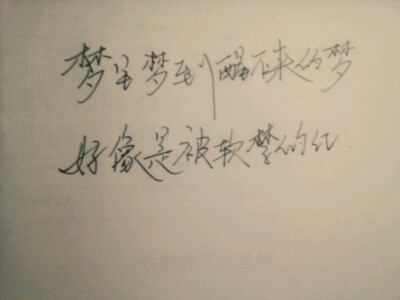 梦里梦到醒不来的梦
好像是被软禁的红